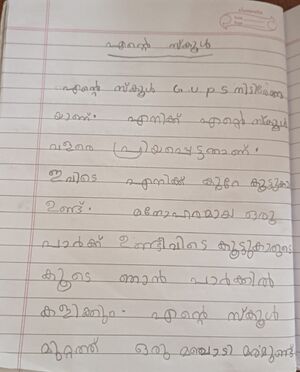 എന്റെ സ്കൂൾ
എന്റെ സ്കൂൾ G.U.P.S
യാണ്. എനിക്ക് എന്റെ സ്കൂൾ
വളരെ പ്രിയപ്പെട്ടതാണ്.
ഇവിടെ എനിക്ക് കുറേ കൂട്ടുകാ
ഉണ്ട്. മനോഹരമായ ഒരു
പാർക്ക് ഉണ്ടിവിടെ കൂട്ടുകാരുടെ
കൂടെ ഞാൻ പാർക്കിൽ
കളിക്കും. എന്റെ സ്കൂൾ
മുറ്റത്ത് ഒരു മഞ്ചാടി മരമുണ്ട്